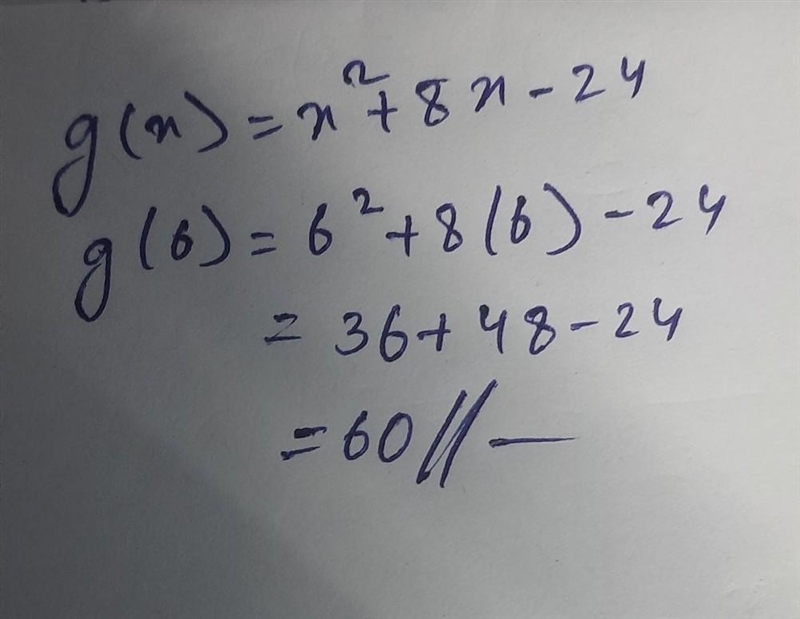 g(x) = x² + 8x - 24
g(6) = 6² + 8(6) - 24
= 36 + 48 - 24
= 60 // —